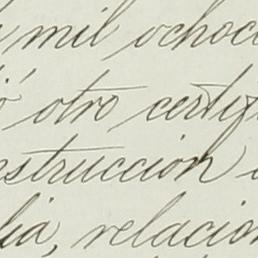 mil ochoc
ó otro certif
nstruccion
lia, relacion